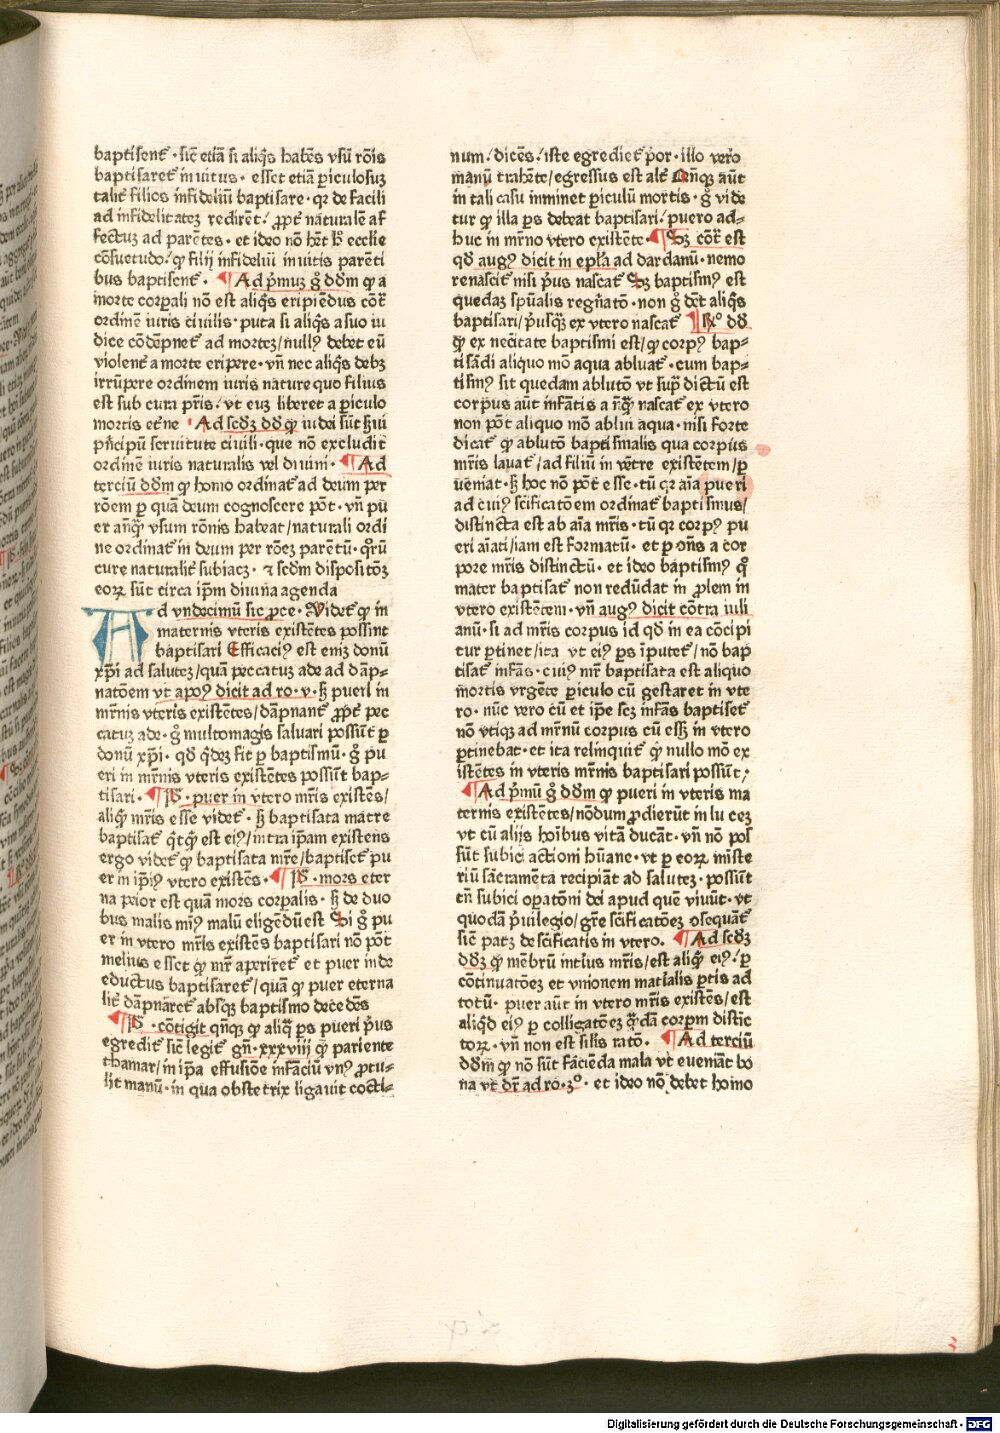 baptisent᷑ · sic̄ etiā si aliq̇s habēs vsū rōis
baptisaret᷑ inuitus · esset etiā ꝑiculosuꝫ
talit᷑ filios infideliū baptisare · qꝛ de facili
ad infidelitateꝫ redirēt / ꝓpt᷑ naturalē af
fectuꝫ ad parētes · et ideo nō hꝫ̄t h̄ ecclie
cōsuetudo / ꝙ filij infideliū inuitis parēti
bus baptisent᷑ · ¶ Ad pͥmuꝫ gͦ ddōm ꝙ a
morte corꝑali nō est aliq̇s eripiēdus cōt᷑
ordinē iuris ciuilis · puta si aliq̇s a suo iu
dice cōdēpnet᷑ ad morteꝫ / nullꝰ debet eū
violent᷑ a morte eripere · vn̄ nec aliq̇s debꝫ
irrūpere ordinem iuris nature quo filius
est sub cura pr̄is / vt euꝫ liberet a ꝑiculo
mortis et᷑ne · ¶ Ad scd̄ꝫ dd̄ꝫ ꝙ iudei sūt ẜui
pͥncipū seruitute ciuili · que nō excludit
ordinē iuris naturalis vel diuini · ¶ Ad
terciū dd̄m ꝙ homo ordinat᷑ ad deum per
rōem ꝑ quā deum cognoscere pōt · vn̄ pu
er anq̄ꝫ vsum rōnis habeat / naturali ordi
ne ordinat᷑ in deum per rōeꝫ parētū · qͦrū
cure naturalit᷑ subiacꝫ · ⁊ scd̄m dispositōꝫ
eoꝝ sūt circa ip̄m diuīa agenda
Ad vndecimū sic ꝓce · Videt᷑ ꝙ in
maternis vteris existētes possint
baptisari Efficaciꝰ est enīꝫ donū
xp̄i ad saluteꝫ / quā peccatuꝫ ade ad dāp=
natōem vt apoꝰ dicit ad ro · v · ẜꝫ pueri in
mr̄nis vteris existētes / dāpnant᷑ ꝓpt᷑ pec
catuꝫ ade · gͦ multomagis saluari possūt ꝑ
donū xp̄i · qd̄ q̇deꝫ fit ꝑ baptismū · gͦ pu
eri in mr̄nis vteris existētes possūt bap=
tisari · ¶ P̄ · puer in vtero mr̄is existēs /
aliqͥd mr̄is esse videt᷑ · ẜꝫ baptisata matre
baptisat᷑ qͥcqͥd est eiꝰ / intra ip̄am existens
ergo videt᷑ ꝙ baptisata mr̄e / baptiset᷑ pu
er in ip̄iꝰ vtero existēs · ¶ P̄ · mors eter
na peior est quā mors corꝑalis · ẜꝫ de duo
bus malis minꝰ malū eligēdū est Si gͦ pu
er in vtero mr̄is existēs baptisari nō pōt
melius esset ꝙ mr̄ aperiret᷑ et puer inde
eductus baptisaret᷑ / quā ꝙ puer eterna
lit᷑ dāpnaret᷑ absqꝫ baptismo decedēs
¶ P̄ · cōtigit qn̄qꝫ ꝙ aliq̄ ps pueri pͥus
egredit᷑ sic̄ legit᷑ gn̄ · xxxviij ꝙ pariente
thamar / in ip̄a effusiōe infāciū vnꝰ ꝓtu=
lit manū · in qua obstetrix ligauit cocti=
num / dicēs / iste egrediet᷑ pͥor · illo vero
manū trahēte / egressus est alt᷑ Qn̄qꝫ aūt
in tali casu imminet ꝑiculū mortis · gͦ vide
tur ꝙ illa ps debeat baptisari / puero ad=
huc in mr̄no vtero existēte · ¶ Sꝫ cōt᷑ est
qd̄ augꝰ dicit in ep̄la ad dardanū · nemo
renascit᷑ nisi pͥus nascat᷑ Sꝫ baptismꝰ est
quedaꝫ spūalis regn̄atō · non gͦ dꝫ̄t aliq̇s
baptisari / pͥusqͣꝫ ex vtero nascat᷑ ¶ Rͦ dd̄
ꝙ ex necītate baptismi est / ꝙ corpꝰ bap=
tisādi aliquo mō aqua abluat᷑ · cum bap=
tismꝰ sit quedam ablutō vt supͣ dictū est
corpus aūt infātis anq̄ꝫ nascat᷑ ex vtero
non pōt aliquo mō ablui aqua · nisi forte
dicat᷑ ꝙ ablutō baptismalis qua corpus
mr̄is lauat᷑ / ad filiū in vētre existētem / ꝑ
ueniat · ẜꝫ hoc nō pōt esse · tū qꝛ aīa pueri
ad cuiꝰ sc̄ificatōem ordinat᷑ baptismus /
distincta est ab aīa mr̄is · tū qꝛ corpꝰ pu
eri aīati / iam est formatū · et ꝑ oñs a cor
pore mr̄is distinctū · et ideo baptismꝰ qͦ
mater baptisat᷑ non redūdat in ꝓlem in
vtero existētem · vn̄ augꝰ dicit cōtra iuli
anū · si ad mr̄is corpus id qd̄ in ea cōcipi
tur ꝑtinet / ita vt eiꝰ ps īputet᷑ / nō bap
tisat᷑ infās · cuiꝰ mr̄ baptisata est aliquo
mortis vrgēte ꝑiculo cū gestaret in vte
ro · nūc vero cū et ip̄e scꝫ infās baptiset᷑
nō vtiqꝫ ad mr̄nū corpus cū essꝫ in vtero
ꝑtinebat · et ita relinquit᷑ ꝙ nullo mō ex
istētes in vteris mr̄nis baptisari possūt /
¶ Ad pͥmū gͦ dd̄m ꝙ pueri in vteris ma
ternis existētes / nōdum ꝓdierūt in luceꝫ
vt cū alijs hoībus vitā ducāt · vn̄ nō pos
sūt subici actioni hūane · vt ꝑ eoꝝ ministe
riū sācramēta recipiāt ad saluteꝫ · possūt
tn̄ subici oꝑatōni dei apud quē viuūt · vt
quodā pͥuilegio / gr̄e sc̄ificatōeꝫ oseqͣnt᷑
sic̄ patꝫ de sc̄ificatis in vtero. ¶ Ad scd̄ꝫ
dd̄ꝫ ꝙ mēbrū intius mr̄is / est aliqͥd eiꝰ / ꝑ
cōtinuatōeꝫ et vnionem mat᷑ialis ꝑtis ad
totū · puer aūt in vtero mr̄is existēs / est
aliqͥd eiꝰ ꝑ colligatōeꝫ qͣndā corpm distīc
toꝝ · vn̄ non est sīlis ratō · ¶ Ad terciū
dd̄m ꝙ nō sūt faciēda mala vt eueniāt bo
na vt dr̄ ad ro · 3ͦ · et ideo nō debet homo
3
Digitalisierung gefördert durch die Deutsche Forschungsgemeinschaft - DFG